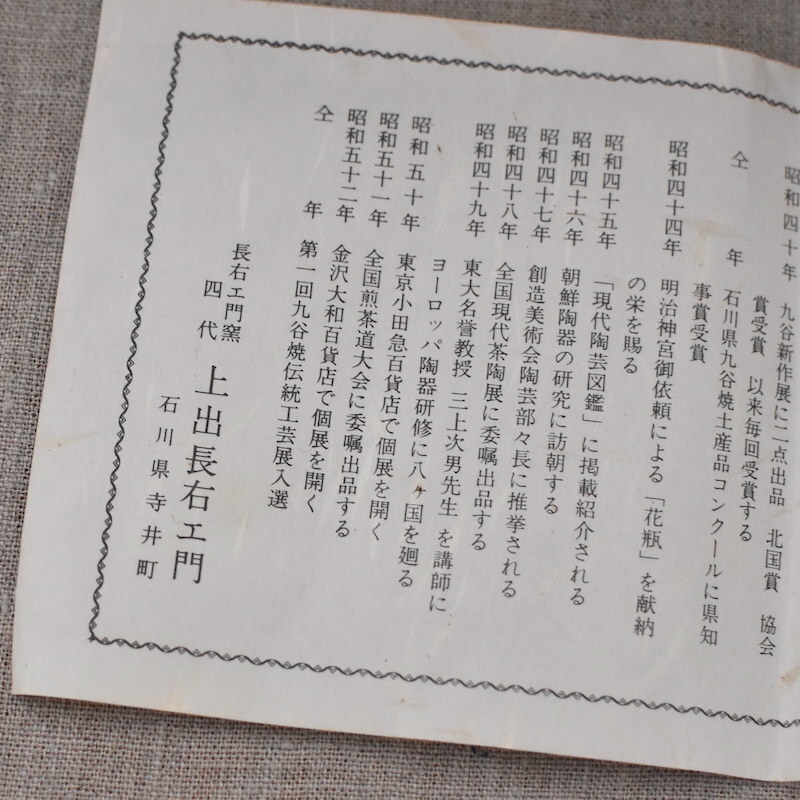 昭和四十年 九谷新作展に二点出品 北国賞 協会
賞受賞 以来毎回受賞する
仝 年 石川県九谷焼土産品コンクールに県知
事賞受賞
昭和四十四年 明治神宮御依頼による「花瓶」を献納
の栄を賜る
昭和四十五年 「現代陶芸図鑑」に掲載紹介される
昭和四十六年 朝鮮陶器の研究に訪朝する
昭和四十七年 創造美術会陶芸部々長に推挙される
昭和四十八年 全国現代茶陶展に委嘱出品する
昭和四十九年 東大名誉教授 三上次男先生 を講師に
ヨーロッパ陶器研修に八ヶ国を廻る
昭和五十年 東京小田急百貨店で個展を開く
昭和五十一年 全国煎茶道大会に委嘱出品する
昭和五十二年 金沢大和百貨店で個展を開く
仝 年 第一回九谷焼伝統工芸展入選
長右エ門窯
四代 上出長右エ門
石川県寺井町